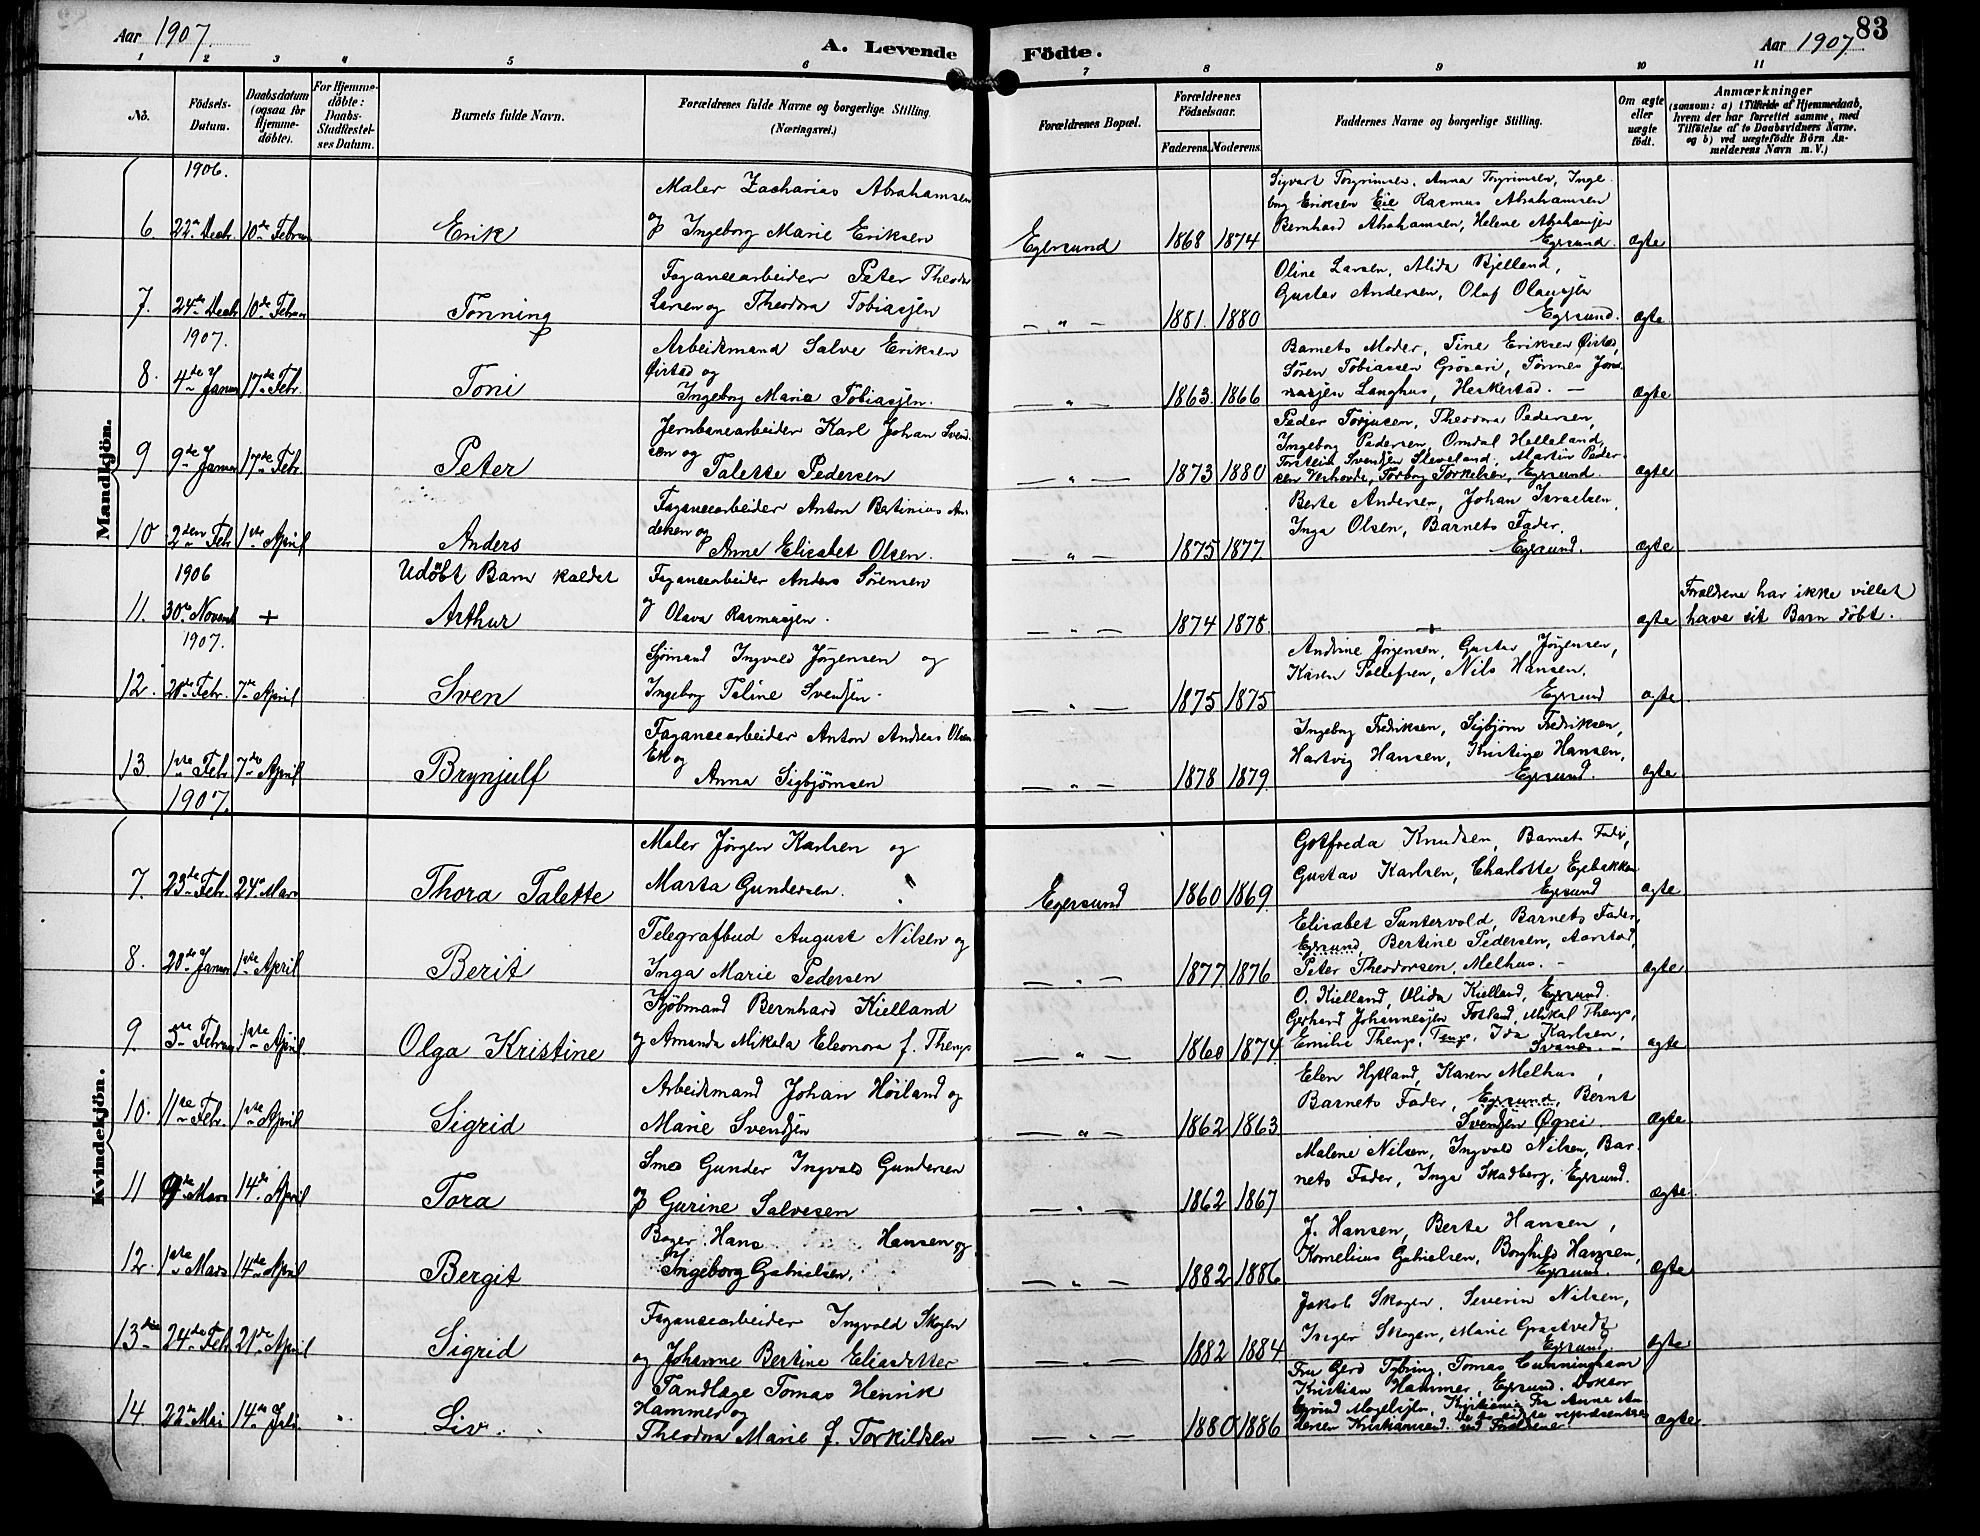 Aar 1907.
A. Levende Födte.
Aar 1907.
83
1 2 3 4 5 6 7 8 9 10 11
No.
Födsels-Datum.
Daabsdatum (ogsaa for Hjemme-döbte).
For Hjemme-döbte: Daabs-Stadfæstel-ses Datum.
Barnets fulde Navn.
Forældrenes fulde Navne og borgerlige Stilling. (Næringsvei.)
Forældrenes Bopæl.
Forældrenes Födselsaar.
Faderens. Moderens.
Faddernes Navne og borgerlige Stilling.
Om ægte eller uægte födt.
Anmærkninger
(saasom: a) i Tilfælde af Hjemmedaab, hvem der har forrettet samme, med Tilföielse af to Daabsvidners Navne. og b) ved uægtefödte Börn An-melderens Navn m. V.)
Mandkjön.
1906.
6 22de Decbr. 10de Februar Erik
Maler Zacharias Abrahamsen
og Ingeborg Marie Eriksen
Egersund 1868 1874
Sigvart Torgrimsen, Anna Torgrimsen, Inge-
borg Eriksen Eie Rasmus Abrahamsen
Bernhard Abrahamsen, Helene Abrahamsen
Egersund. ægte
7. 24de Decbr 10de Februar Tønning
Fayancearbeider Peter Theodor
Larsen og Theodora Tobiasjen
— " — 1881. 1880
Oline Larsen, Alida Bjelland,
Gustav Andersen, Olaf Olausjen
Egersund. ægte
1907.
8. 4de Januar 17de Febr. Toni
Arbeidsmand Salve Eriksen
Øirtad og
Ingeborg Maria Tobiasjen.
— " — 1863. 1866
Barnets Moder, Tine Eriksen
Søren Tobiassen Grøsari, Tønnes Jon-
nasjen Langhus, Heskestad. — ægte
9 9de Januar 17de Febr. Peter
Jernbanearbeider Karl Johan Svend-
sen og
Talette Pedersen
— " — 1873 1880
Peder Torjusen, Theodora Pedersen,
Ingeborg Pedersen, Omdal Helleland,
Torstein Svendsen Sleveland, Martin Peder-
sen Torborg Torkelsen, Egersund. ægte
10 2den Febr 1ste April Anders
Fayancearbeider Anton Batinius An-
dersen og
Anne Elisabet Olsen.
— " — 1875 1877
Berte Andersen, Johan Israelsen,
Inga Olsen, Barnets Fader,
Egersund. ægte
1906
11. 30te Novemb + Udöbt Barn kaldet
Arthur
Fayancearbeider Anders Sørensen
og Olava Rasmusjen.
— " — 1874 1878. + ægte
Forældrene har ikke villet
have sit Barn döbt.
1907.
12. 20de Febr. 7de April Sven
Sjømand Ingvald Jørgensen og
Ingeborg Taline Svendsen.
— " — 1875 1875
Andrine Jørgensen, Gustav Jørgensen,
Karen Tollefsen, Nils Hansen,
Egersund ægte
13 1ste Febr. 7de April Brynjulf
Fayancearbeider Anton Andreas Olsen
Ek og
Anna Sigbjørnsen
— " — 1878 1879.
Ingeborg Fredriksen, Sigbjørn Fredriksen,
Hartvig Hansen, Kristine Hansen,
Egersund. ægte
Kvindekjön.
1907.
7. 23de Febr. 24de Mars Thora Talette
Maler Jørgen Karlsen og
Marta Gundersen.
Egersund 1860 1869.
Gotfreda Knudsen, Barnets Fader,
Gustav Karlsen, Charlotte Egebakken
Egersund ægte
8. 20de Januar 1ste April Berit
Telegrafbud August Nilsen og
Inga Marie Pedersen
— " — 1877 1876
Elisabet Puntervold, Barnets Fader,
Egersund, Bertine Pedersen, Aarstad,
Peter Theodorsen, Melhus. — ægte
9. 3die Februar 1ste April Olga Kristine
Kjøbmand Bernhard Kielland
og Amanda Mikala Eleonora f. Thengs
— " — 1860 1874
O. Kielland, Olida Kielland, Egersund.
Gerhard Johannesjen Fotland, Mikal Thengs,
Emilie Thengs, Tengs, Ida Karlsen,
Svanes. — ægte
10. 11te Febr. 1ste April Sigrid
Arbeidsmand Johan Høiland og
Marie Svendsen
— " — 1862 1863
Elen Hytland, Karen Melhus,
Barnets Fader, Egersund, Bernt
Svendsen Øgrei. ægte
11 9de Mars 14de April Tora
Smed Gunder Ingvald Gundersen
og Gurine Salvesen
— " — 1862 1867
Malene Nilsen, Ingvald Nilsen, Bar-
nets Fader, Inga Skadberg, Egersund. ægte.
12. 1ste Mars 14de April Bergit
Bager Hans Hansen og
Ingeborg Gabrielsen.
— " — 1882 1886
J. Hansen, Berte Hansen,
Kornelius Gabrielsen, Borghild Hansen,
Egersund. ægte
13 24de Febr 21de April Sigrid
Fayancearbeider Ingvald Skogen
og Johanne Bertine Eliasdatter
— " — 1882 1884
Jakob Skogen, Severin Nilsen,
Inger Skogen, Marie Graatvedt
Egersund. ægte
14. 22de Mai 14de Juli " Liv.
Tandlæge Tomas Henrik
Hammer og
Theodora Marie f. Torkildsen
— " — 1880 1886
Fru Gerd Tybring, Tomas Cunningham
Kristian Hammer, Egersund. Doktor
Eyvind Kristiania Fru Anne An-
dersen Kristiansand. De to sidste repræsenteres
ved Forældrene. ægte